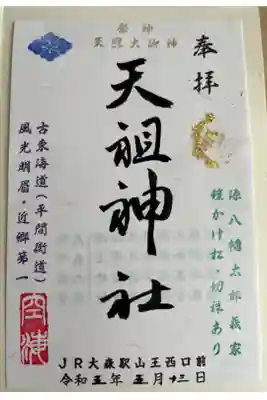 奉拝
祭神
天照大御神
天祖神社
源八幡太郎義家
鎧かけ松・切株あり
古東海道(平間街道)
風光明眉・近郷第一
空海
JR大森駅山王西口前
令和五年 五月 十三日